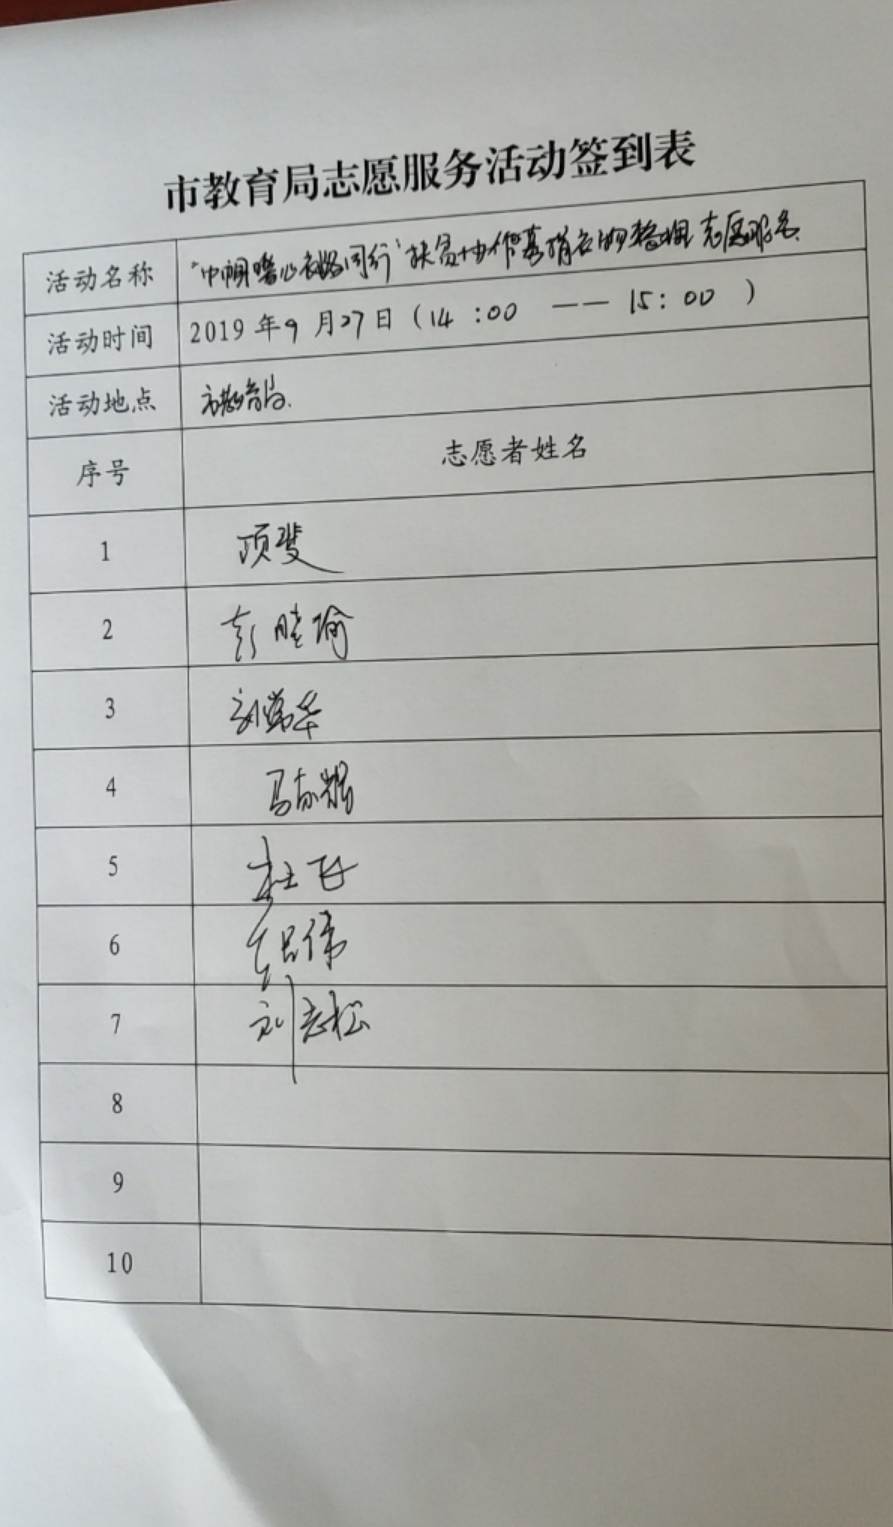 市教育局志愿服务活动签到表
活动名称 "巾帼暖心衣路同行"扶贫协作募捐衣物整理志愿服务
活动时间 2019年9月27日(14:00 —— 15:00 )
活动地点 市教育局.
序号 志愿者姓名
1 项斐
2 彭
3 刘常华
4 马
5 杜飞
6 伟
7 刘志松
8
9
10